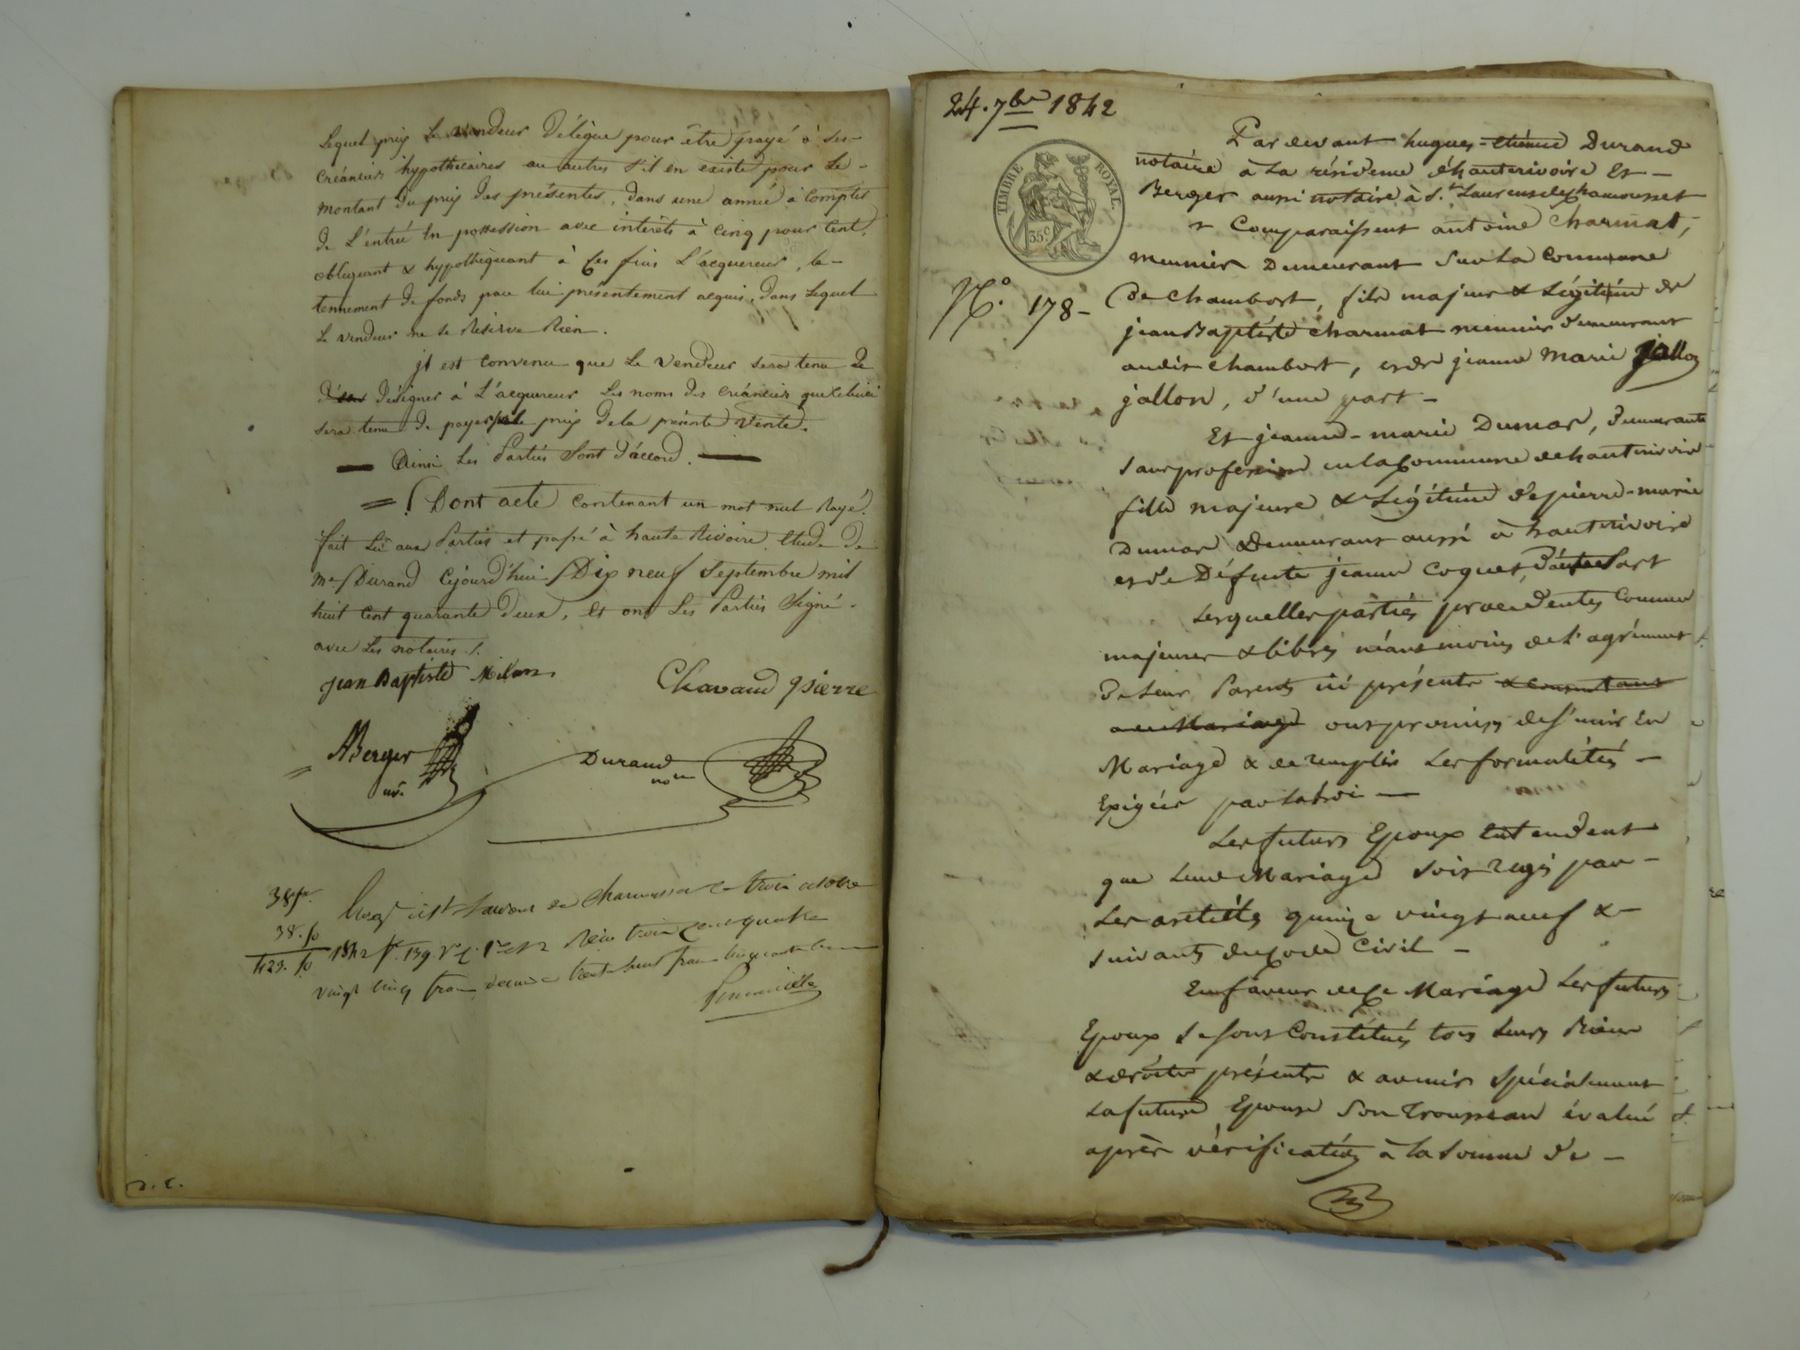 Lequel prix Le vendeur délègue pour être payé à ses
créanciers hypothécaires ou autres s'il en existe pour Le -
montant du prix des présentes, dans une année à compter
de L'entrée en possession avec intérêts à cinq pour cent,
obligeant & hypothéquant à ces fins L'acquereur, le -
tennement de fonds par lui présentement acquis, dans Lequel
Le vendeur ne se Réserve Rien.
jl est convenu que Le vendeur sera tenu de
désigner à L'acquereur Les noms des créanciers que celui ci
sera tenu de payer le prix de la présente vente.
— Ainsi Les Parties Sont d'accord. —
= Dont acte contenant un mot nul Rayé.
fait Lu aux Parties et passé à haute Rivoire Etude de
me Durand Cejourd'hui Dix neuf Septembre mil
huit cent quarante deux, et ont Les Parties Signé -
avec Les notaires ./.
jean Baptiste Chavand pierre
ABerger
Durand
nore
38 fr.
38. 50
423. 50
trois octobre
1842 fo. 139 Reçu trois cent quatre
vingt cinq francs
24. 7bre 1842
TIMBRE ROYAL
35c
Par devant hugues-etienne Durand
notaire à La résidence d'hauterivoire Et -
Berger aussi notaire à St. Laurent de chamousset
Comparaissent antoine Charmat,
meunier Demeurant Sur La Commune
No. 178 - De Chambost, fils majeur & Légitime de
jean Baptiste charmat meunier demeurant
audit chambost, et de jeanne Marie
jallon, d'une part -
Et jeanne-marie Dumas, Demeurante
sans profession en la Commune de hauterivoire
fille majeure & Légitime de pierre-marie
Dumas Demeurant aussi à hauterivoire
et de Défunte jeanne Coquet, D'autre Part
Lesquelles parties procedentes Comme
majeures & libres néanmoins de L'agrément
De Leurs Parents ici présents & consentant
au Mariage ont promis de s'unir En
Mariage & de remplir Les formalités -
Exigées par la Loi —
Les futurs Epoux Entendent
que Leur Mariage Soit régi par -
Les articles quinze vingt neuf & -
suivants du Code Civil -
En faveur de Ce Mariage Les futurs
Epoux se sont Constitués tous Leurs Biens
& droits présents & avenir Spécialement
La future Epouse Son Trousseau évalué
après vérification à la somme de -